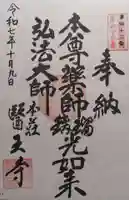 奉納
本尊薬師瑠璃光如来
弘法大師
本荘
醫王寺
令和七年十月九日